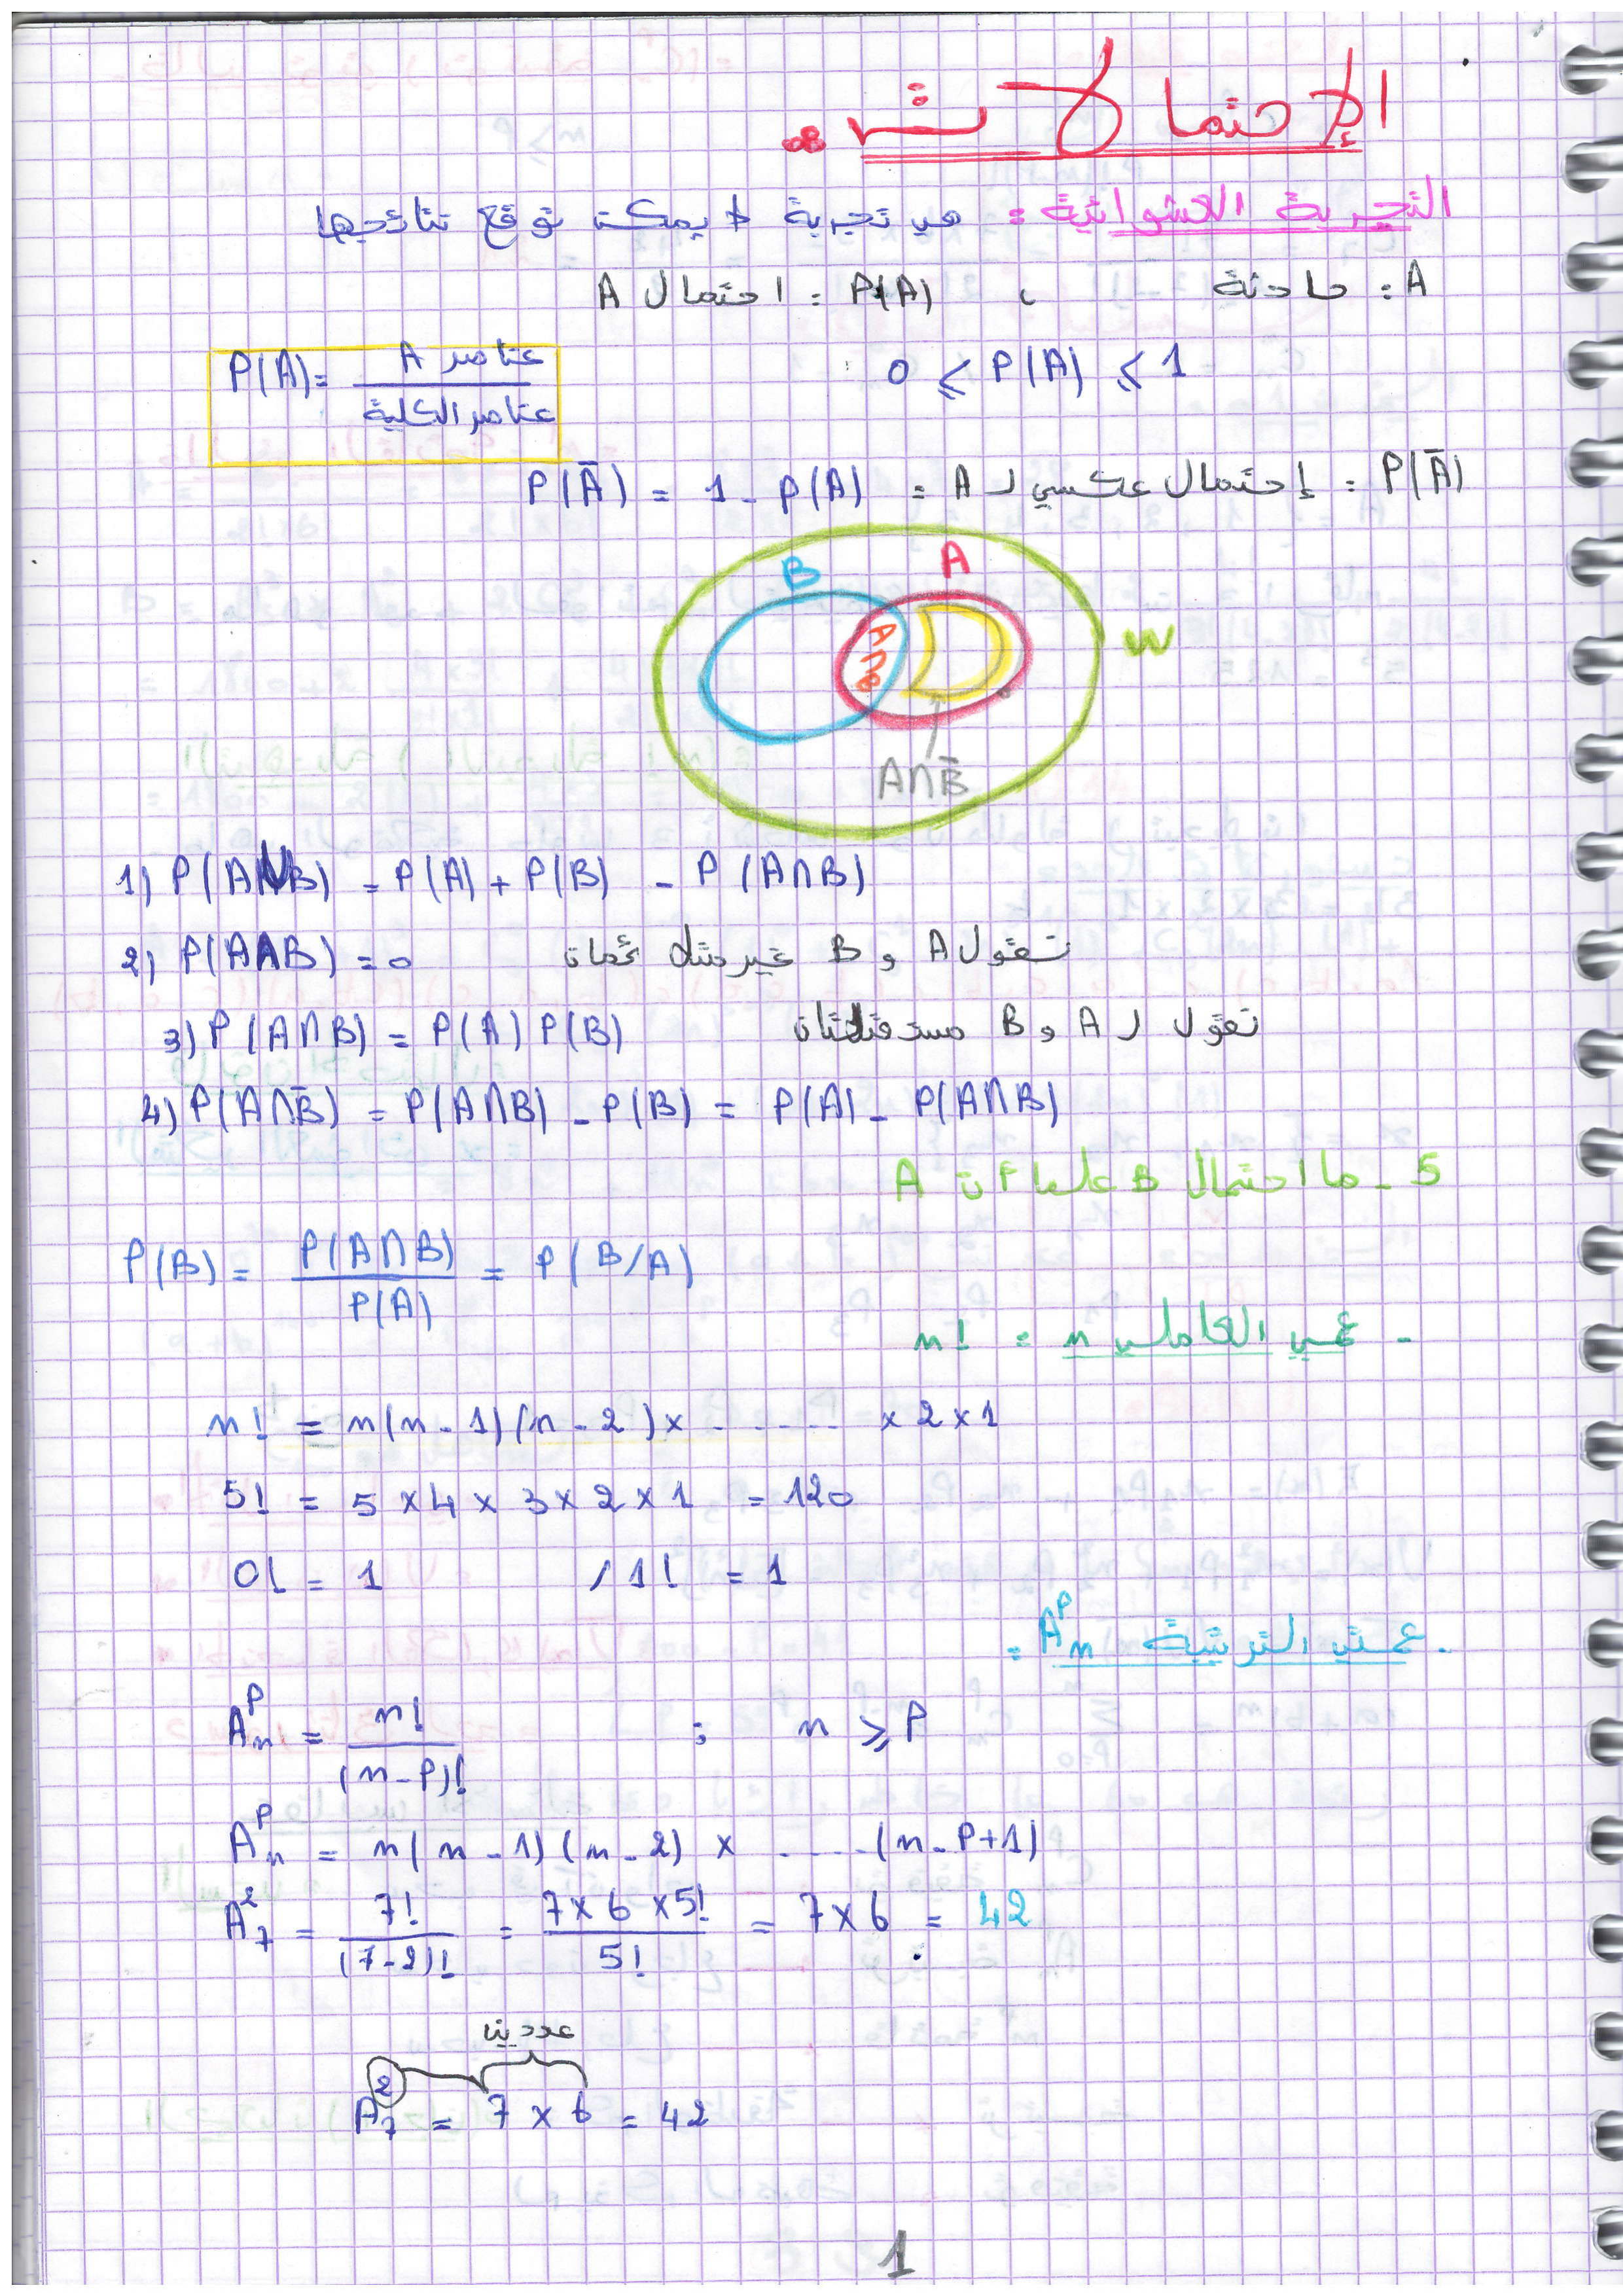 الإحتمالات
التجربة العشوائية : هي تجربة لا يمكن توقع نتائجها
A : حادثة ، P(A) : احتمال A
0 ⩽ P(A) ⩽ 1
P(A) = عناصر A / عناصر الكلية
P(Ā) : إحتمال عكسي لـ A = P(Ā) = 1 - P(A)
B A
A∩B W
A∩B̄
1) P(A∪B) = P(A) + P(B) - P(A∩B)
2) P(A∩B) = 0 نقول A و B غير متلائمان
3) P(A∩B) = P(A) P(B) نقول لـ A و B مستقلتان
4) P(A∩B̄) = P(A∩B) - P(B) = P(A) - P(A∩B)
5 - ما احتمال B علما أن A
P(B) = P(A∩B) / P(A) = P(B/A)
- العاملي n : n!
n! = n(n-1)(n-2) × ...... × 2 × 1
5! = 5 × 4 × 3 × 2 × 1 = 120
0! = 1 / 1! = 1
- الترتيبة Aₙᴾ :
Aₙᴾ = n! / (n-P)! ; n ⩾ P
Aₙᴾ = n(n-1)(n-2) × ..... (n-P+1)
A₇² = 7! / (7-2)! = 7×6×5! / 5! = 7×6 = 42
عددين
A₇² = 7 × 6 = 42
1